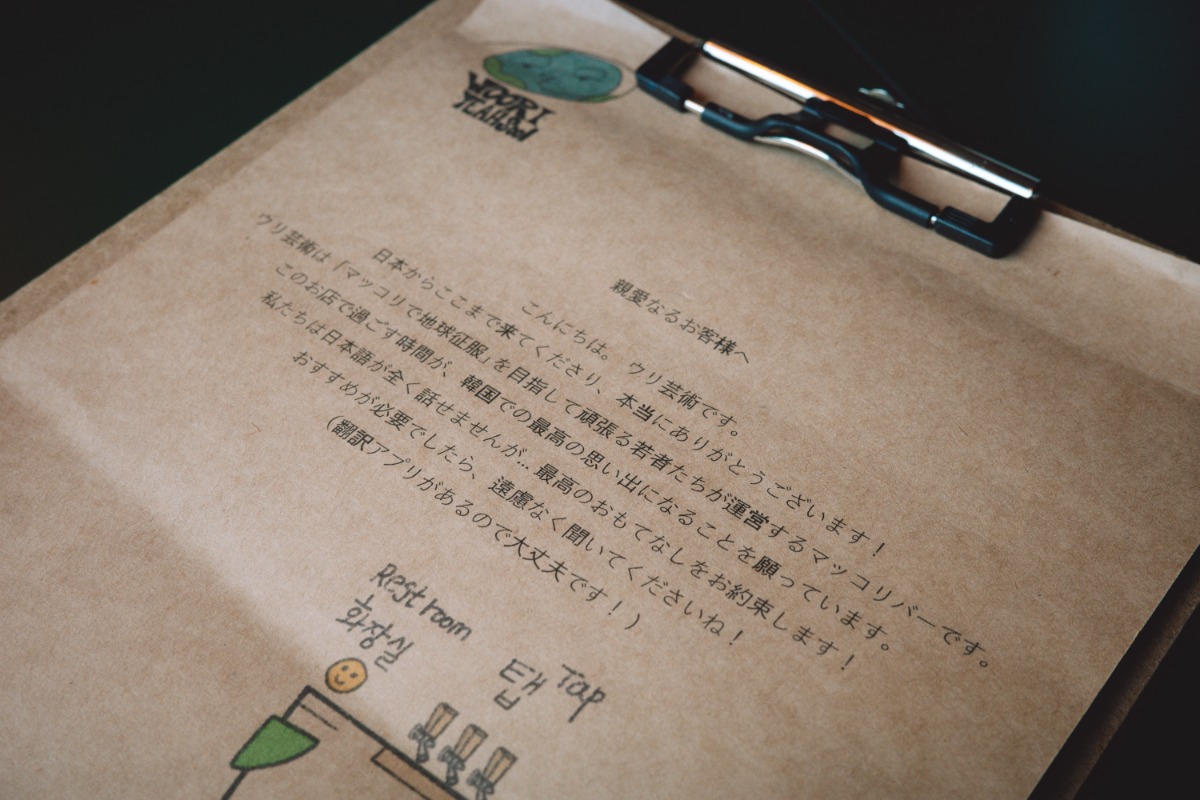 WOORI
親愛なるお客様へ
こんにちは。 ウリ芸術です。
日本からここまで来てくださり、本当にありがとうございます！
ウリ芸術は「マッコリで地球征服」を目指して頑張る若者たちが運営するマッコリバーです。
このお店で過ごす時間が、韓国での最高の思い出になることを願っています。
私たちは日本語が全く話せませんが... 最高のおもてなしをお約束します！
おすすめが必要でしたら、遠慮なく聞いてくださいね！
(翻訳アプリがあるので大丈夫です！)
Restroom
화장실
탭 Tap